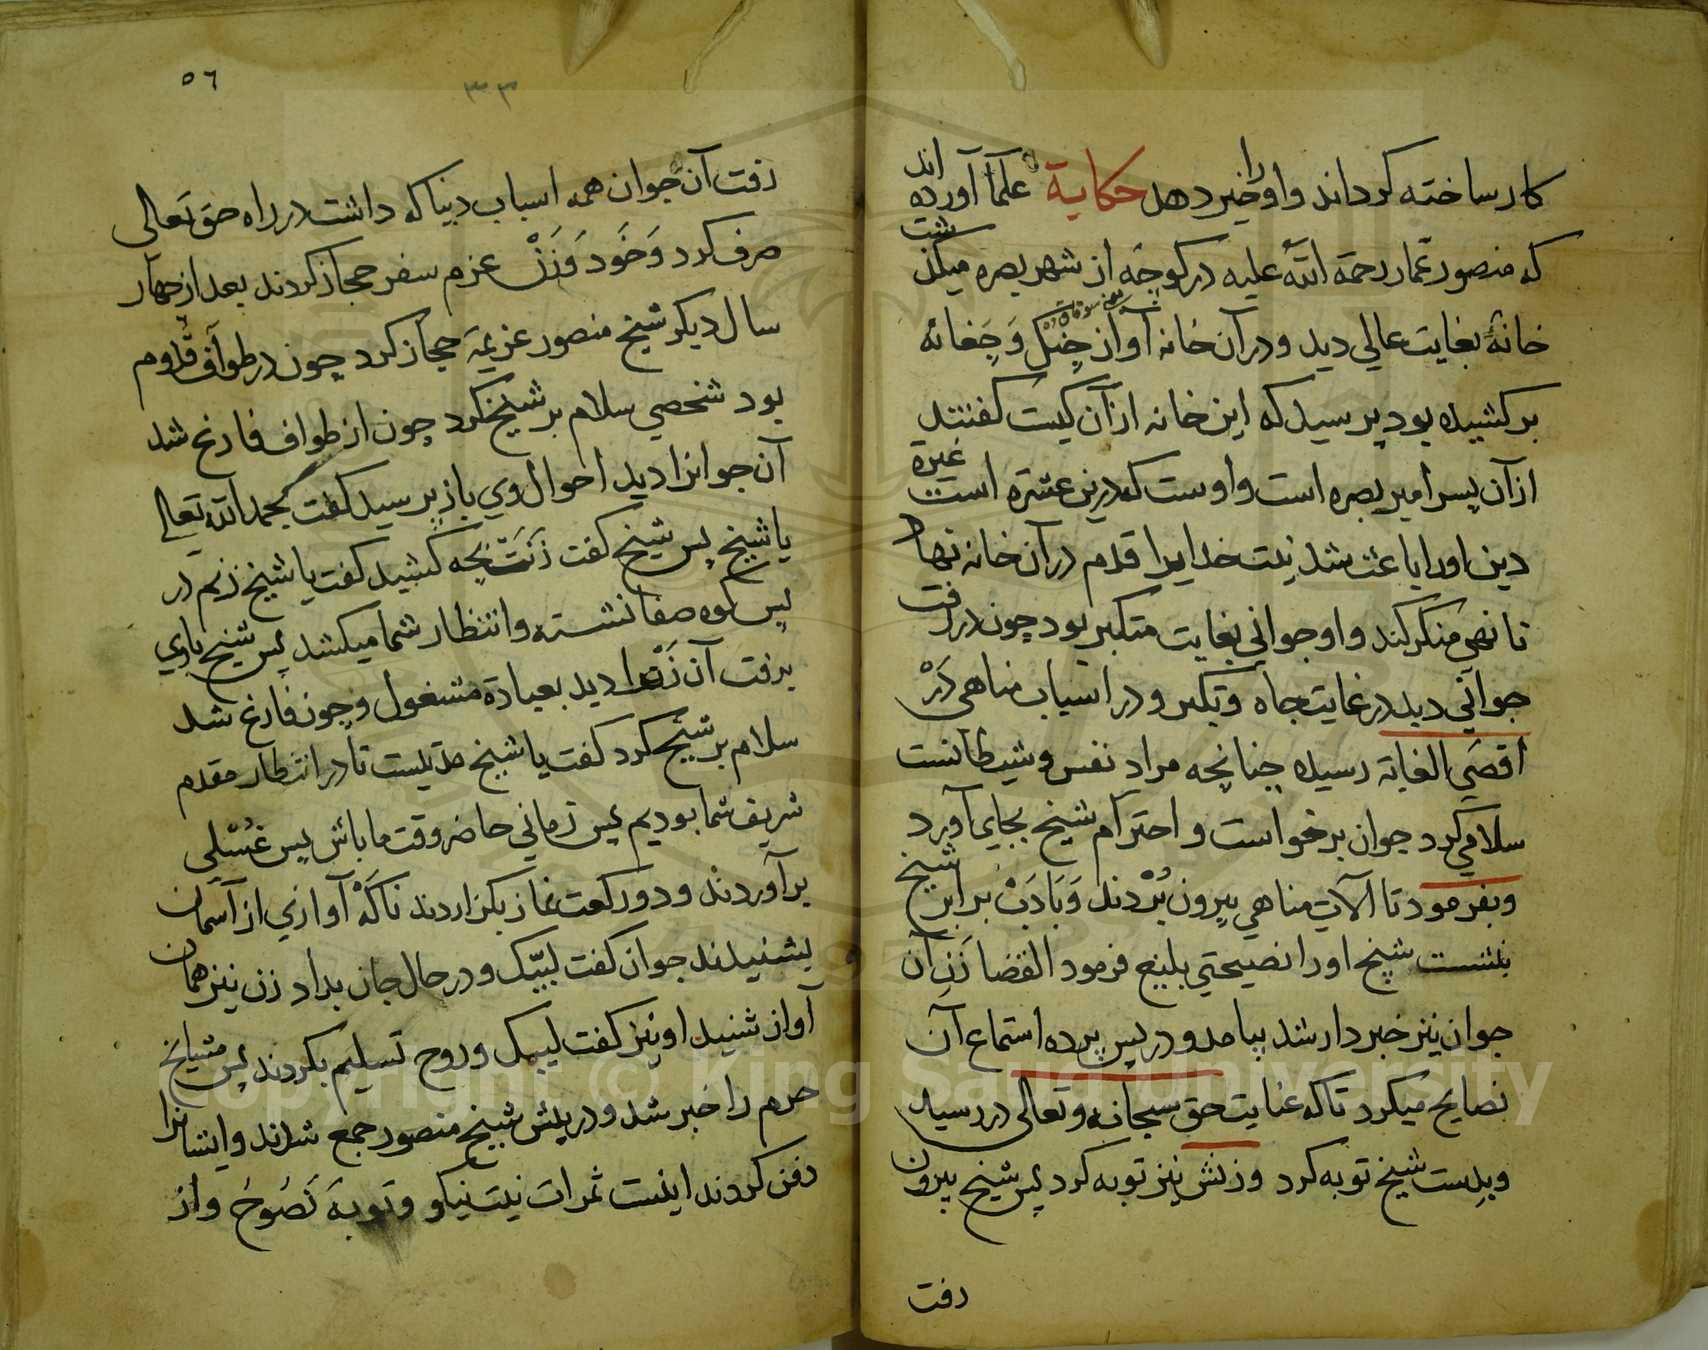 کار ساخته کرداند و او را خیر دهد حکایة علما آورده اند
که منصور عمار رحمة الله علیه در کوچه از شهر بصره میکذشت
خانهٔ بغایت عالي دید و در آن خانه آواز جنك و چغانه
بر کشیده بود پرسید که این خانه از آن کیست کفتند
از آن پسر امیر بصره است و اوست که درین عشرة است غیرة
دین او را باعث شد نیت خدایرا قدم در آن خانه نهاد
تا نهي منکر کند و او جواني بغایت متکبر بود چون در رفت
جواني دید در غایت جاه و تکبر و در اسباب مناهي در
اقصی الغایة رسیده چنانچه مراد نفس و شیطانست
سلامي کرد جوان برخواست و احترام شیخ بجاي آورد
و بفرمود تا آلات مناهي بیرون بردند و بادب برابر شیخ
بنشست شیخ او را نصیحتي بلیغ فرمود القضا زن آن
جوان نیز خبردار شد بیامد و در پس پرده استماع آن
نصایح میکرد تا که عنایت حق سبحانه و تعالی در رسید
و بدست شیخ توبه کرد و زنش نیز توبه کرد پس شیخ بیرون
رفت
٥٦
٣٣
رفت آن جوان همه اسباب دنیا که داشت در راه حق تعالی
صرف کرد و خود و زن عزم سفر حجاز کردند بعد از چهار
سال دیکر شیخ منصور عزیمة حجاز کرد چون در طواف قدوم
بود شخصي سلام بر شیخ کرد چون از طواف فارغ شد
آن جوانرا دید احوال وي باز پرسید کفت بحمد الله تعالی
یا شیخ پس شیخ کفت زنت بچه کشید کفت یا شیخ زنم در
پس کوه صفا نشسته و انتظار شما میکشد پس شیخ باوي
برفت آن زن را دید بعبادة مشغول و چون فارغ شد
سلام بر شیخ کرد کفت یا شیخ مدتیست تا در انتظار مقدم
شریف شما بودیم پس زماني حاضر وقت ما باش پس غسلي
بر آوردند و دو رکعت نماز بکزاردند ناکه آوازي از آسمان
بشنیدند جوان کفت لبیك و در حال جان بداد زن نیز همان
آواز شنید او نیز کفت لبیك و روح تسلیم بکردند پس مشایخ
حرم را خبر شد و در پیش شیخ منصور جمع شدند و ایشانرا
دفن کردند اینست ثمرات نیت نیکو و توبة نصوح و از
Copyright © King Saud University